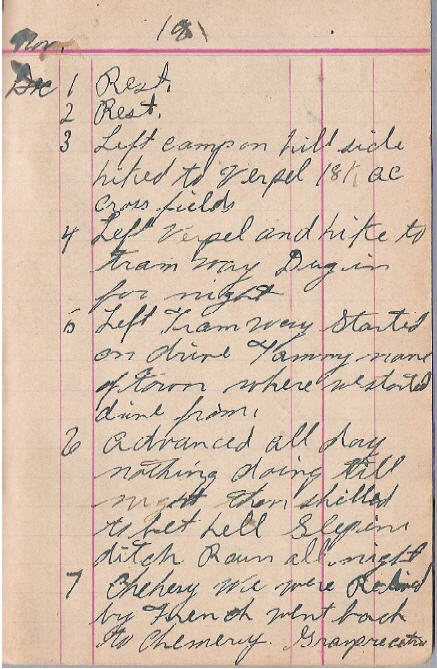 Nov. 181
Dec 1 Rest.
2 Rest.
3 Left camp on hill side
hiked to Verpel 18 K ac
cross fields
4 Left Verpel and hike to
tram way Dug in
for night
5 Left Tramway Started
on drive Tammy name
of town where we started
drive from.
6 Advanced all day
nothing doing till
night then shelled
to bet hell Slep in
ditch Rain all night
7 Chehery We were Relived
by French went back
to Chemery.